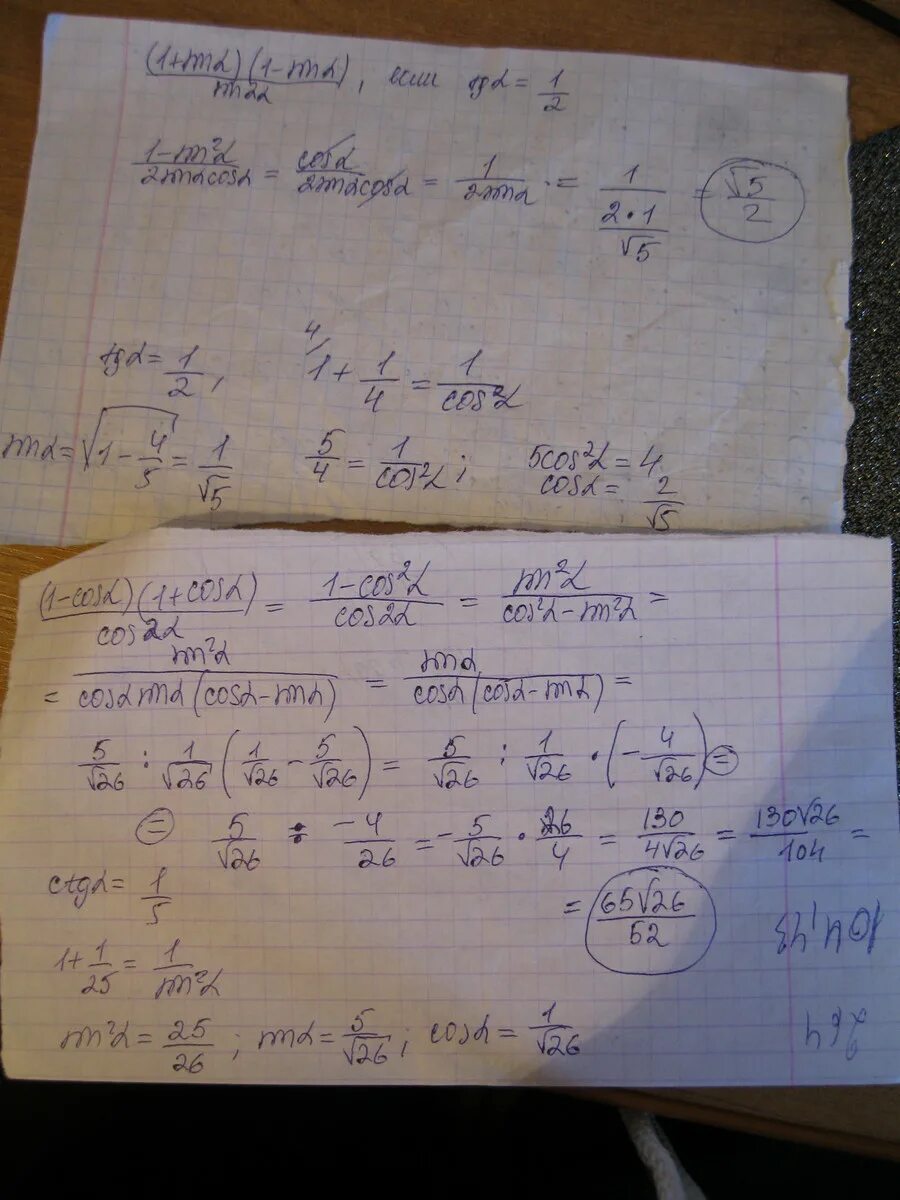 (1+sinα)(1-sinα)/sin2α, если tgα = 1/2
1-sin²α/2sinαcosα = cosα/2sinαcosα = 1/2sinα · = 1/(2·1/√5) = √5/2
tgα = 1/2, 4/ 1 + 1/4 = 1/cos²α
sinα = √(1 - 4/5) = 1/√5 5/4 = 1/cos²α; 5cos²α = 4
cosα = 2/√5
(1-cosα)(1+cosα)/cos2α = 1-cos²α/cos2α = sin²α/cos²α-sin²α =
= sin²α/cosαsinα(cosα-sinα) = sinα/cosα(cosα-sinα) =
5/√26 : 1/√26 (1/√26 - 5/√26) = 5/√26 : 1/√26 · (-4/√26) =
= 5/√26 : -4/26 = -5/√26 · 26/4 = 130/4√26 = 130√26/104 =
ctgα = 1/5 = 65√26/52
1 + 1/25 = 1/sin²α
sin²α = 25/26; sinα = 5/√26; cosα = 1/√26